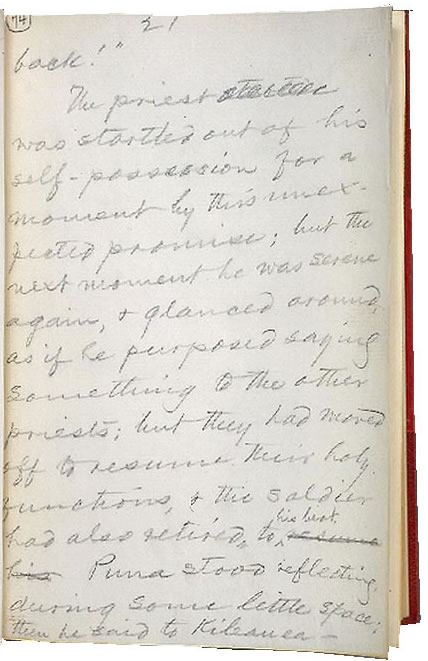 74
21
back!"
The priest started
was startled out of his
self-possession for a
moment by this unex-
pected promise; but the
next moment he was serene
again, & glanced around,
as if he purposed saying
something to the other
priests; but they had moved
off to resume their holy
functions, & the soldier
his beat.
had also retired, to resume
his Puna stood reflecting,
during some little space;
then he said to Kileanea —